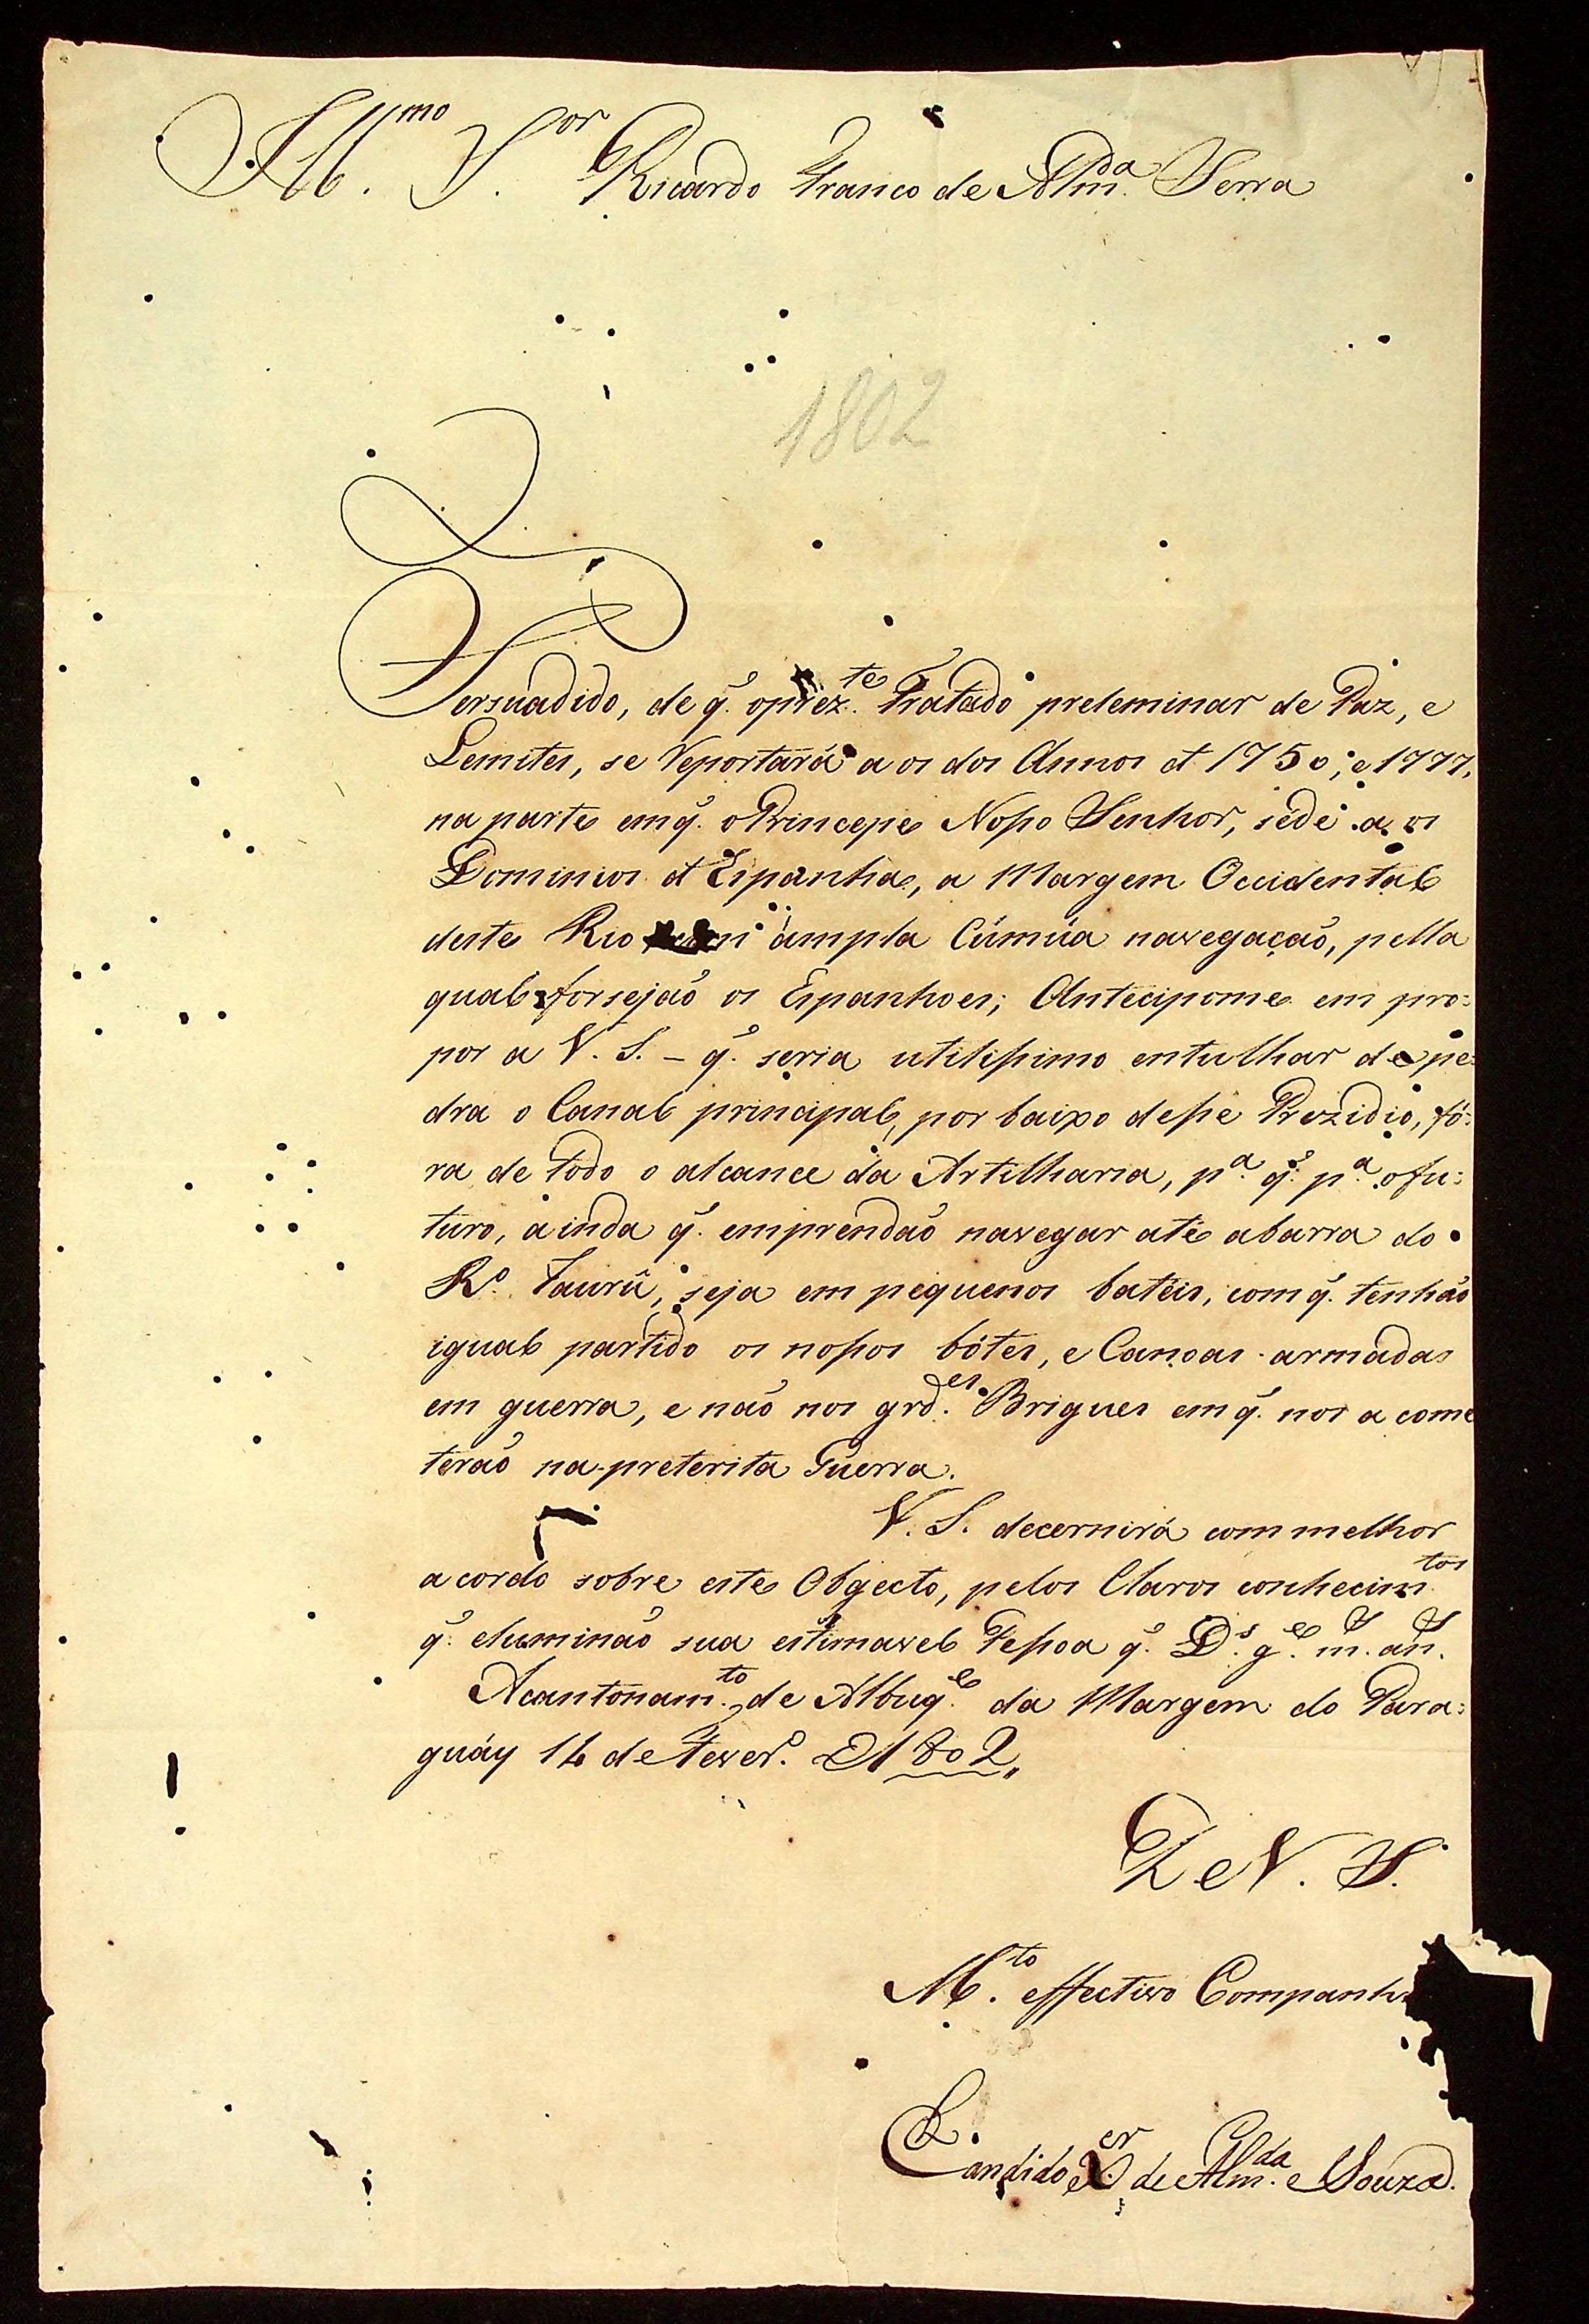 Ill.mo S.or Ricardo Franco de Alm.da Serra
1802
Persuadido, de q̃. oprez.te Tratado preleminar de Paz, e
Lemites, se reportará a os dos Annos d 1750, e 1777,
na parte em q̃. o Princepe Nosso Senhor, sede a os
Dominios d Espanha, a Margem Occidental
deste Rio ampla Cúmúa navegação, pella
qual forsejaõ os Espanhoes; Antecipome em pro:
por a V. S. - q̃. seria utilissimo entulhar de pe:
dra o Canal principal, por baixo desse Prezidio, fó:
ra de todo o alcance da Artilharia, p.a q̃. p.a o fu:
turo, ainda q̃. emprendaõ navegar até abarra do
R.o Taurû, seja em pequenos batéis, com q̃. tenhaõ
igual partido os nossos bótes, e Canoas armadas
em guerra, e naõ nos grd.es Brigues em q̃. nos a come
teraõ na preterita Guerra.
V. S. decernirá com melhor
acordo sobre este Obgecto, pelos Claros conhecim.tos
q̃. eluminaõ sua estimavel Pessoa q̃. D.s g.e m. an.
Acantonam.to de Albuq.e da Margem do Para:
guáy 14 de Fever.o D 1802,,
De V. S.
M.to effectivo Companh
Candido X.er de Alm.da e Souza.